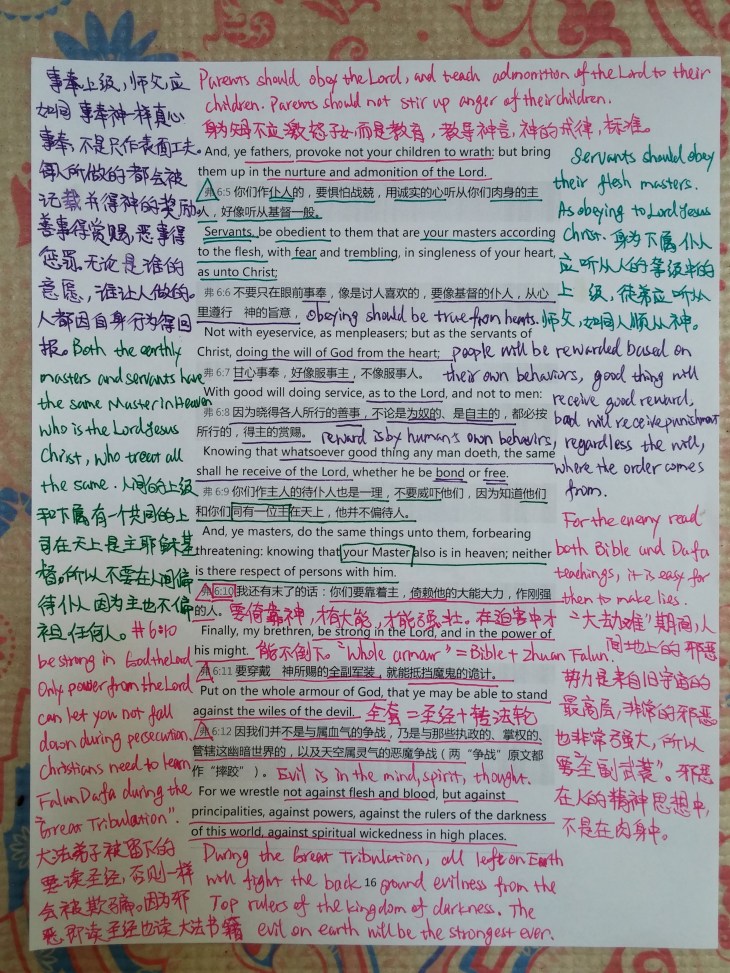 Parents should obey the Lord, and teach admonition of the Lord to their
children. Parents should not stir up anger of their children.
身为父母不应激怒子女而是教育，教导神言，神的戒律，标准。
And, ye fathers, provoke not your children to wrath: but bring
them up in the nurture and admonition of the Lord.
弗 6:5 你们作仆人的，要惧怕战兢，用诚实的心听从你们肉身的主
人，好像听从基督一般。
Servants, be obedient to them that are your masters according
to the flesh, with fear and trembling, in singleness of your heart,
as unto Christ;
弗 6:6 不要只在眼前事奉，像是讨人喜欢的，要像基督的仆人，从心
里遵行 神的旨意，obeying should be true from hearts.
Not with eyeservice, as menpleasers; but as the servants of
Christ, doing the will of God from the heart;
弗 6:7 甘心事奉，好像服事主，不像服事人。
With good will doing service, as to the Lord, and not to men:
弗 6:8 因为晓得各人所行的善事，不论是为奴的、是自主的，都必按
所行的，得主的赏赐。reward is by human's own behaviors,
Knowing that whatsoever good thing any man doeth, the same
shall he receive of the Lord, whether he be bond or free.
弗 6:9 你们作主人的待仆人也是一理，不要威吓他们，因为知道他们
和你们同有一位主在天上，他并不偏待人。
And, ye masters, do the same things unto them, forbearing
threatening: knowing that your Master also is in heaven; neither
is there respect of persons with him.
弗 6:10 我还有末了的话：你们要靠着主，倚赖他的大能大力，作刚强
的人。要倚靠神，才有大能，才能强壮。在迫害中才
Finally, my brethren, be strong in the Lord, and in the power of
his might. 能不倒下。"Whole armour" = Bible + Zhuan Falun.
弗 6:11 要穿戴 神所赐的全副军装，就能抵挡魔鬼的诡计。
Put on the whole armour of God, that ye may be able to stand
against the wiles of the devil. 全套=圣经+转法轮
弗 6:12 因我们并不是与属血气的争战，乃是与那些执政的、掌权的、
管辖这幽暗世界的，以及天空属灵气的恶魔争战（两“争战”原文都
作“摔跤”）。Evil is in the mind, spirit, thought.
For we wrestle not against flesh and blood, but against
principalities, against powers, against the rulers of the darkness
of this world, against spiritual wickedness in high places.
During the Great Tribulation, all left on Earth
will fight the back ground evilness from the
16
Top rulers of the kingdom of darkness. The
evil on earth will be the strongest ever.
事奉上级，师父应
如同事奉神一样真心
事奉，不是只作表面工夫。
每人所做的都会被
记载书得神的奖励。
善事得赏赐，恶事得
惩罚。无论是谁的
意愿，谁让人做的。
人都因自身行为得回
报。Both the earthly
masters and servants have
the same Master in Heaven
who is the Lord Jesus
Christ, who treat all
the same. 人间的上级
和下属有一个共同的上
司在天上是主耶稣基
督。所以不要在人间偏
待仆人因为主也不偏
袒任何人。#6:10
be strong in God the Lord
Only power from the Lord
can let you not fall
down during persecution.
Christians need to learn
Falun Dafa during the
"Great Tribulation".
大法弟子被留下的
要读圣经，否则一样
会被欺骗。因为邪
恶即读圣经也读大法书籍
Servants should obey
their flesh masters.
As obeying to Lord Jesus
Christ. 身为下属仆人
应听从人的等级中的
上级，徒弟应听从
师父，如同人顺从神。
people will be rewarded based on
their own behaviors, good thing will
receive good reward,
bad will receive punishment
regardless the will,
where the order comes
from.
For the enemy read
both Bible and Dafa
teachings, it is easy for
them to make lies.
“大劫难”期间，人
间地上的邪恶
势力是来自旧宇宙的
最高层，非常的邪恶。
也非常强大，所以
要“全副武装”。邪恶
在人的精神思想中，
不是在肉身中。